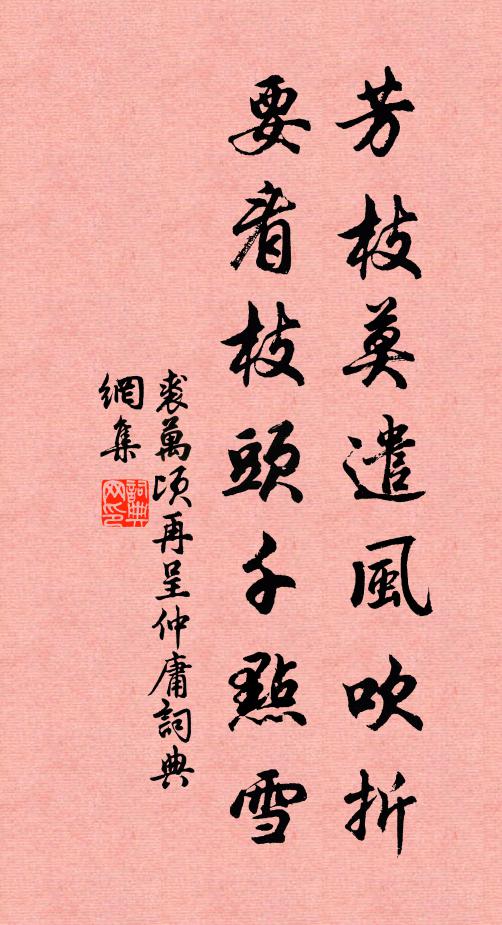 芳枝莫遣風吹折
要看枝頭千點雪
裘萬頃再呈仲庸詞典
網集
詞典網印